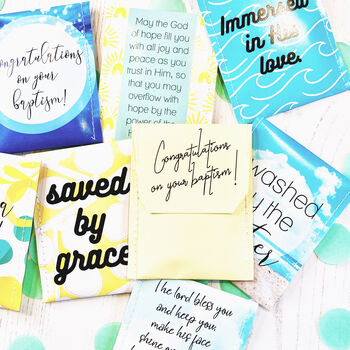 Congratulations
on your
baptism!
May the God
of hope fill you
with all joy and
peace as you
trust in Him, so
that you may
overflow with
hope by the
power of the
Immersed
in His
love.
Congratulations
on your baptism!
saved
by
grace
washed
by the
The lord bless you
and keep you;
make his face
shine